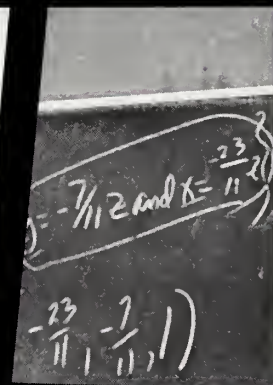 = -7/11 z and x = -23/11 z
-23/11, -7/11, 1)